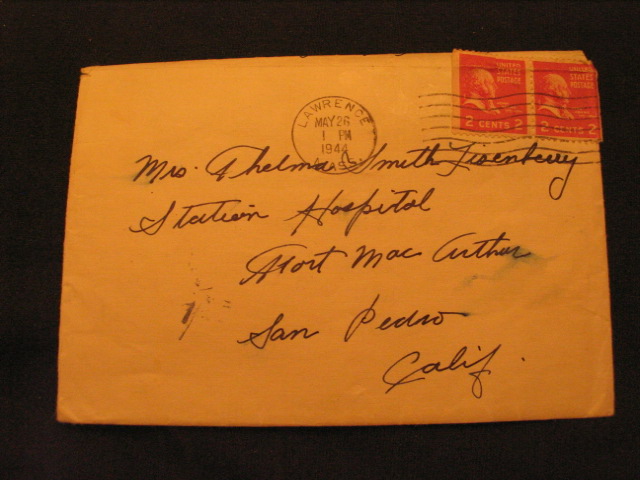 UNITED STATES POSTAGE
2 CENTS 2
UNITED STATES POSTAGE
2 CENTS 2
LAWRENCE
MAY 26
1 PM
1944
MASS.
Mrs. Thelma Smith Eisenberry
Station Hospital
Fort Mac Arthur
San Pedro
Calif.